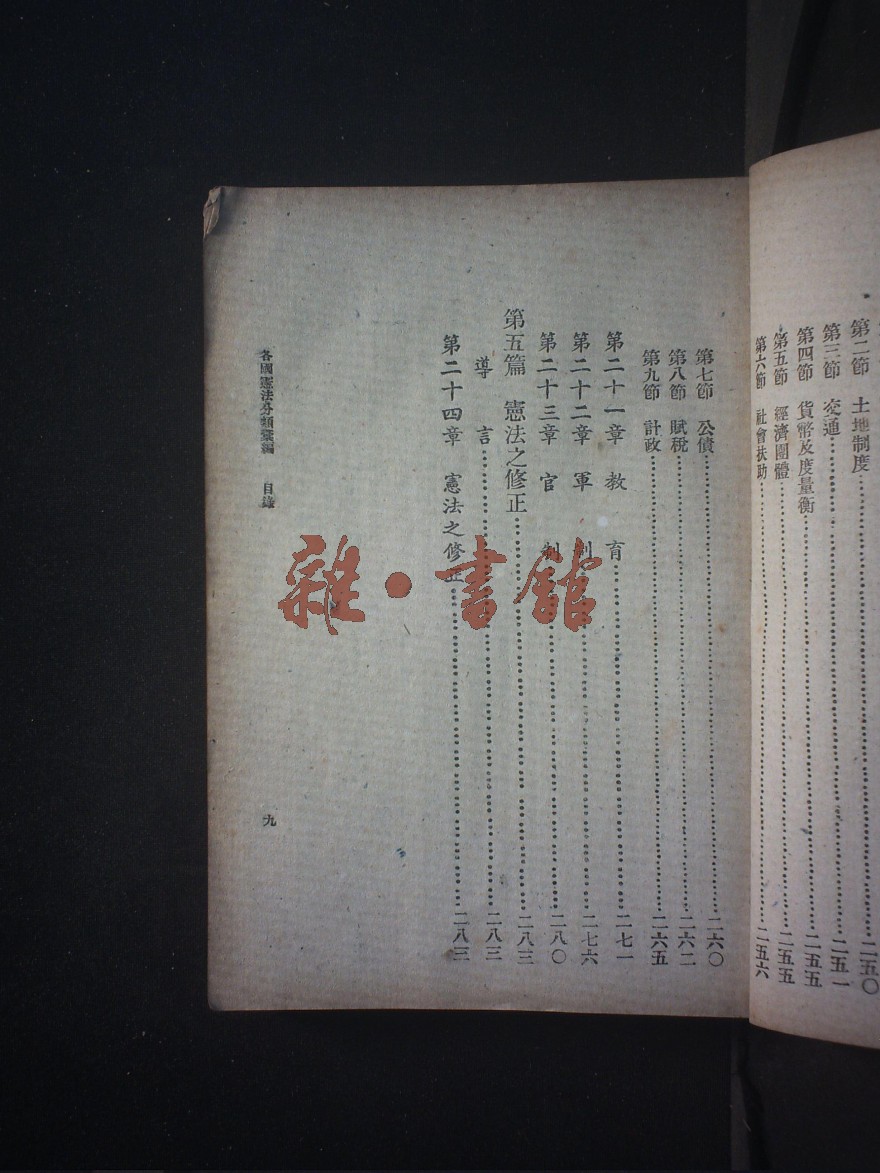 第二節 土地制度 二五〇
第三節 交通 二五一
第四節 貨幣及度量衡 二五五
第五節 經濟團體 二五五
第六節 社會扶助 二五六
第七節 公債 二六〇
第八節 賦稅 二六二
第九節 計政 二六五
第二十一章 教育 二七一
第二十二章 軍制 二七六
第二十三章 官制 二八〇
第五篇 憲法之修正 二八三
導言 二八三
第二十四章 憲法之修正 二八三
各國憲法分類彙編 目錄
九
雜·書館